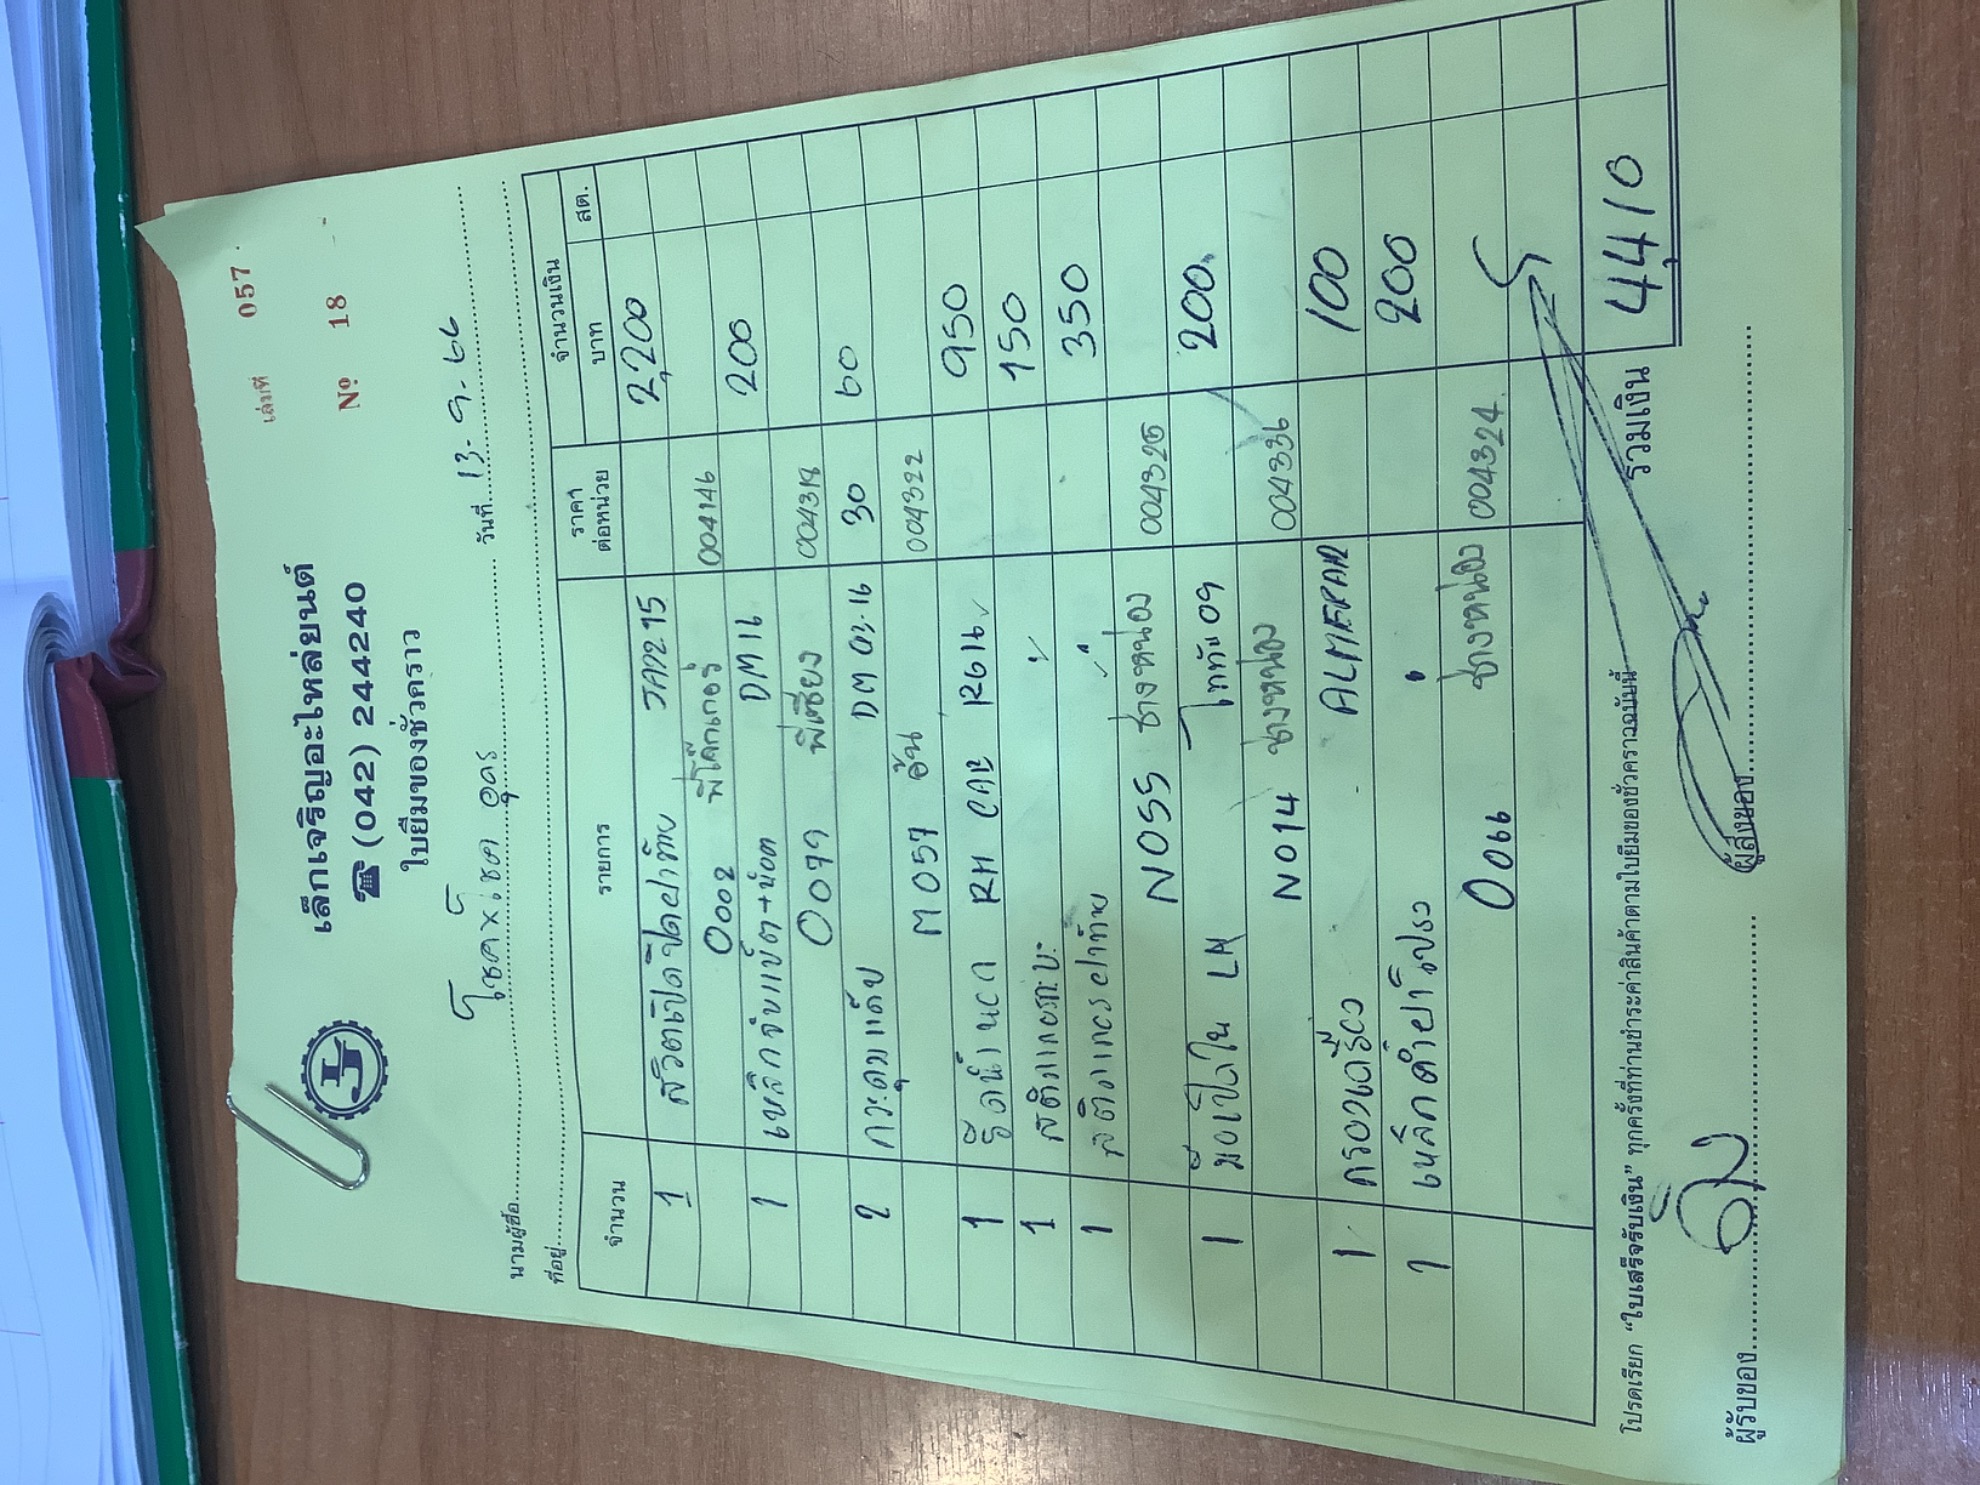 เล่มที่ 057
เล็กเจริญอะไหล่ยนต์
☎ (042) 244240
Nº 18
ใบยืมของชั่วคราว
นามผู้ซื้อ โชค×โชค อุดร วันที่ 13-9-66
ที่อยู่
จำนวน รายการ ราคาต่อหน่วย จำนวนเงิน บาท สต.
1 สวิตเปิดปิดฝาท้าย JAZZ 15 2,200
0002 พี่โค๊กเกอร์ 004146
1 เหล็กจับแบ็ต+น๊อต DM 16 200
0079 004318
2 กระดุมแค็ป DM 03-16 30 60
M057 อ้น 004322
1 RH CAB R616 950
1 สติกเกอร 150
1 สติกเกอร ฝาท้าย 350
N055 ช่างหน่อง 004325
1 มือเปิดใน LH ไททัน 09 200
N014 ช่างหน่อง 004336
1 กรองเครื่อง ALMERAR 100
1 เหล็กค้ำฝาโปรง " 200
0066 ช่างหน่อง 004324
รวมเงิน 4410
โปรดเรียก "ใบเสร็จรับเงิน" ทุกครั้งที่ท่านชำระค่าสินค้าตามใบยืมของชั่วคราวฉบับนี้
ผู้รับของ ผู้ส่งของ